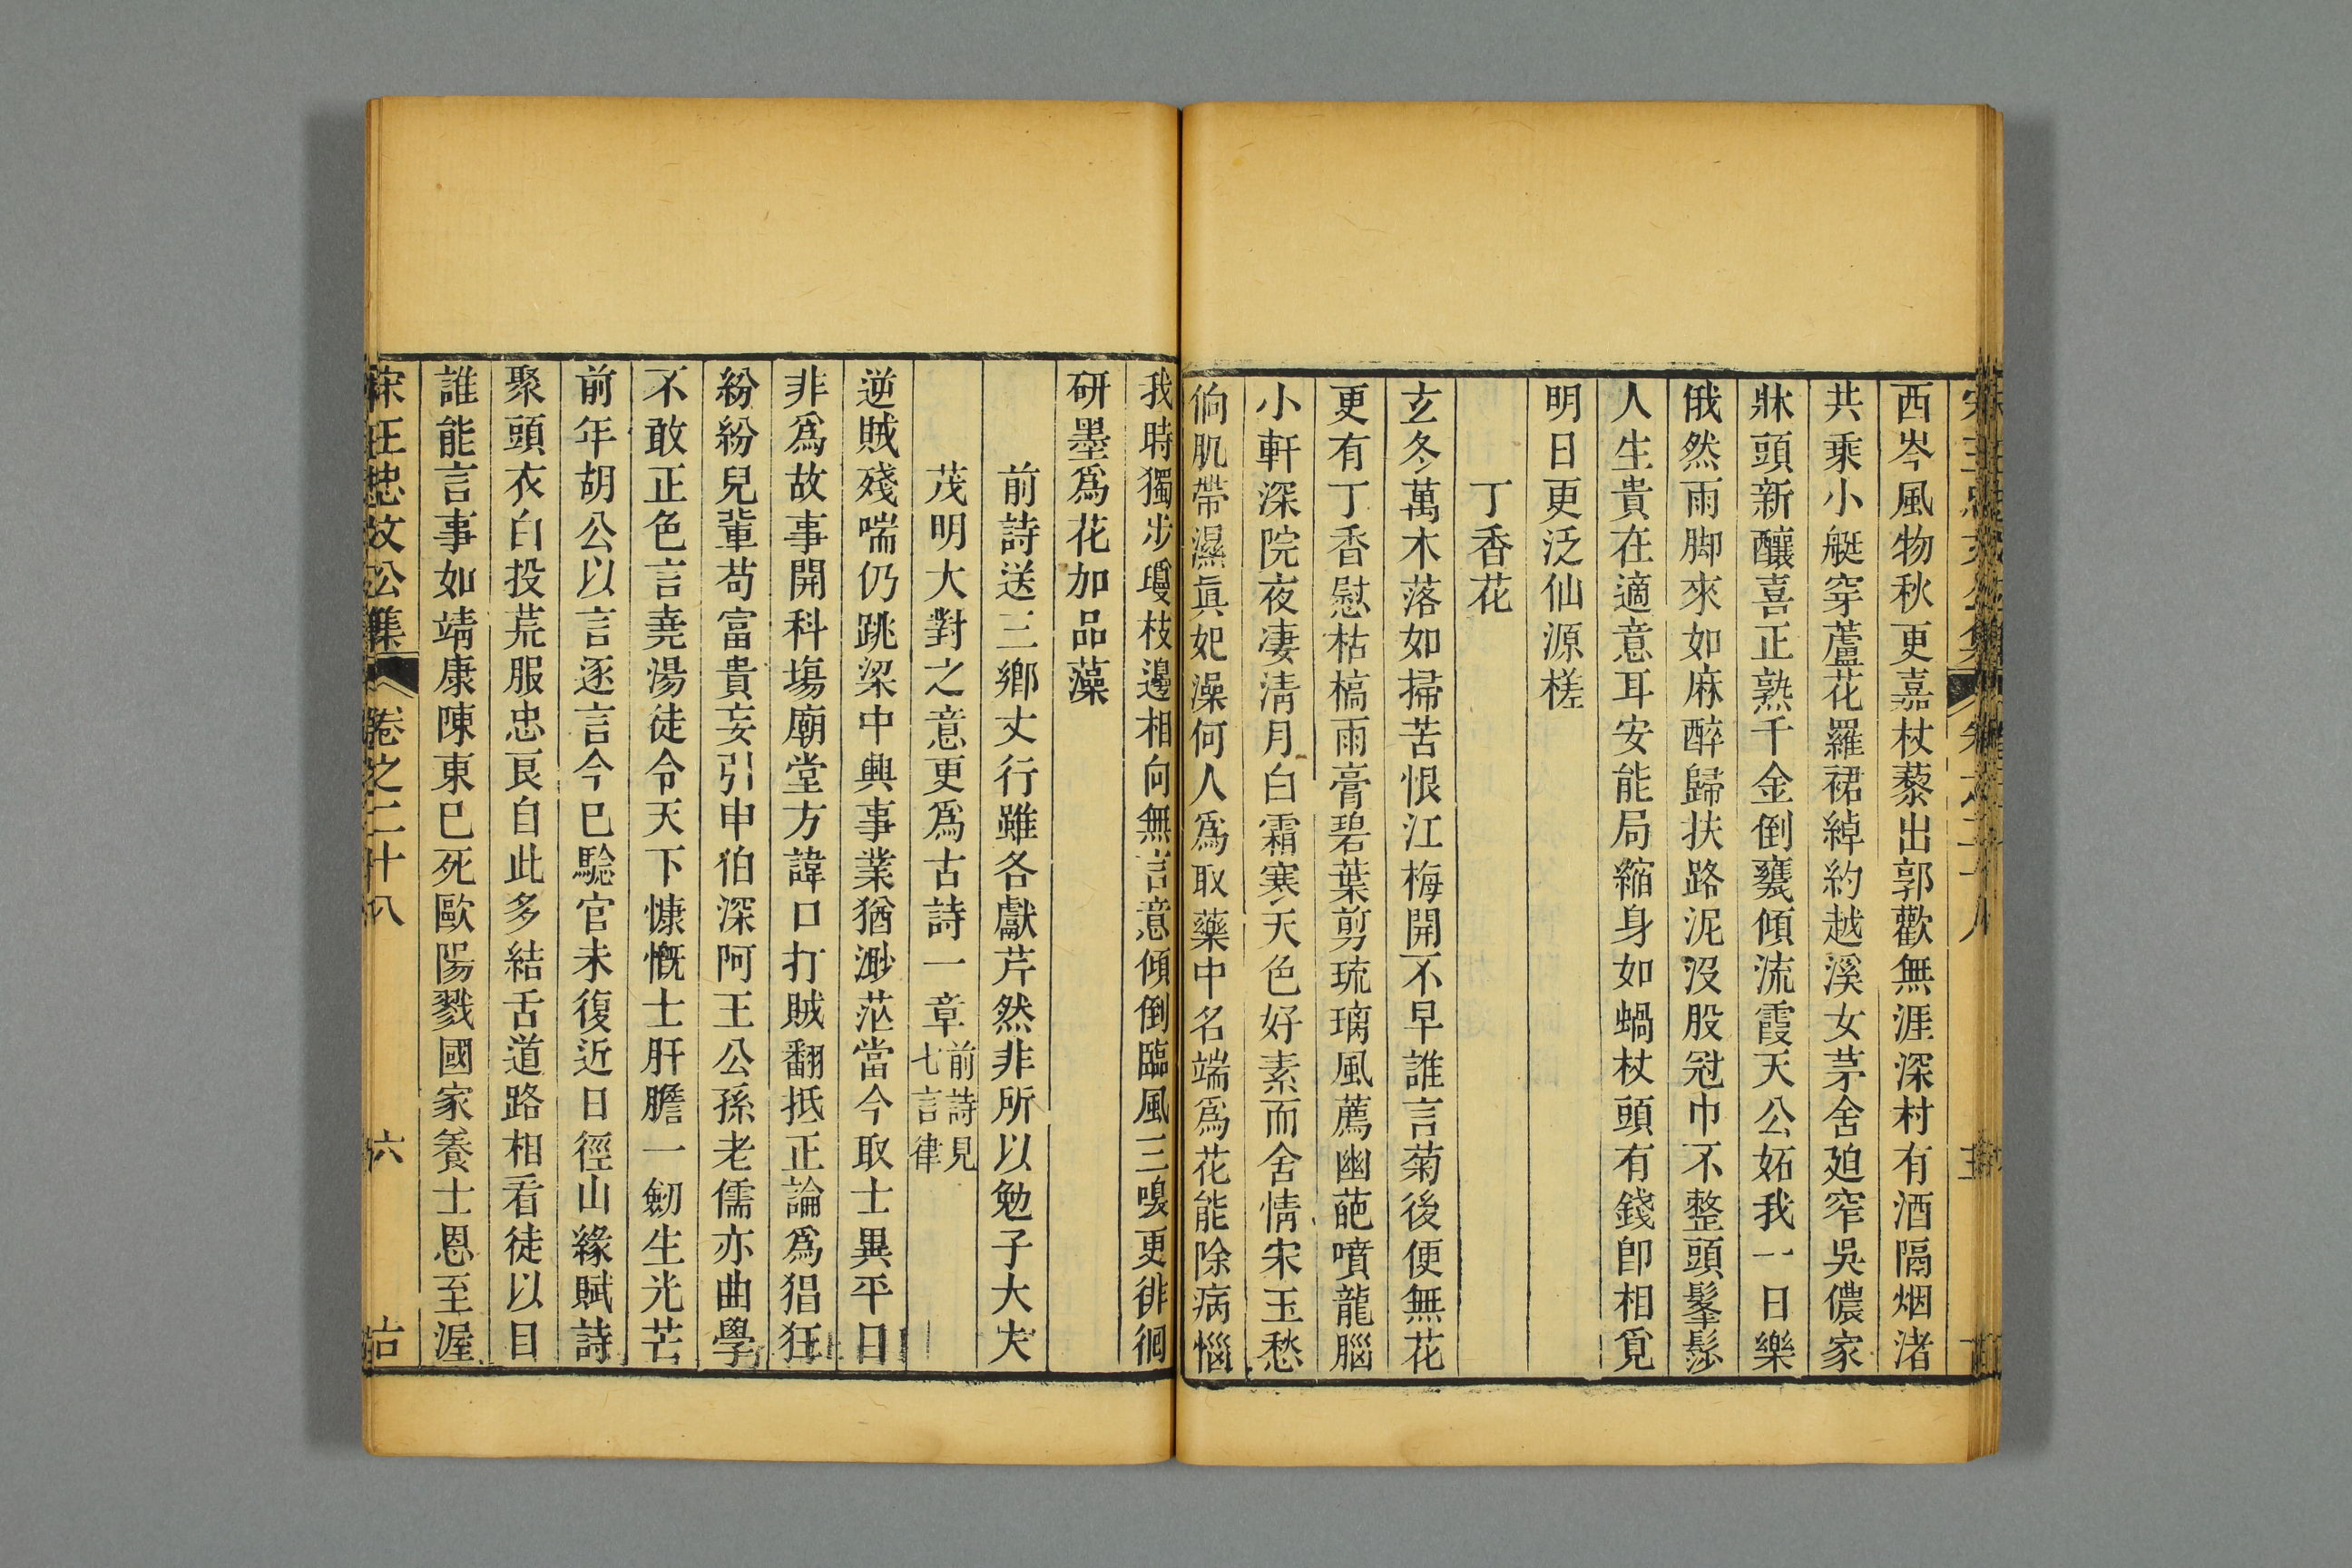 西岑風物秋更嘉杖藜出郭歡無涯深村有酒隔烟渚
共乘小艇穿蘆花羅裙綽約越溪女茅舍廹窄吳儂家
牀頭新釀喜正熟千金倒甕傾流霞天公妬我一日樂
俄然雨脚來如麻醉歸扶路泥沒股冠巾不整頭鬔髿
人生貴在適意耳安能局縮身如蝸杖頭有錢卽相覓
明日更泛仙源槎
丁香花
玄冬萬木落如掃苦恨江梅開不早誰言菊後便無花
更有丁香慰枯槁雨膏碧葉剪琉璃風薦幽葩噴龍腦
小軒深院夜凄淸月白霜寒天色好素而舍情宋玉愁
肌帶濕眞妃澡何人爲取藥中名端爲花能除病惱
我時獨步瓊枝邊相向無言意傾倒臨風三嗅更徘徊
研墨爲花加品藻
前詩送三鄉丈行雖各獻芹然非所以勉子大夫
茂明大對之意更爲古詩一章前詩見七言律
逆賊殘喘仍跳梁中興事業猶渺茫當今取士異平日
非爲故事開科塲廟堂方諱口打賊翻抵正論爲猖狂
紛紛兒輩苟富貴妄引申伯深阿王公孫老儒亦曲學
不敢正色言堯湯徒令天下慷慨士肝膽一劒生光芒
前年胡公以言逐言今巳騐官未復近日徑山緣賦詩
聚頭衣白投荒服忠良自此多結舌道路相看徒以目
誰能言事如靖康陳東巳死歐陽戮國家養士恩至渥
宋汪忠文公集 卷之二十八 六